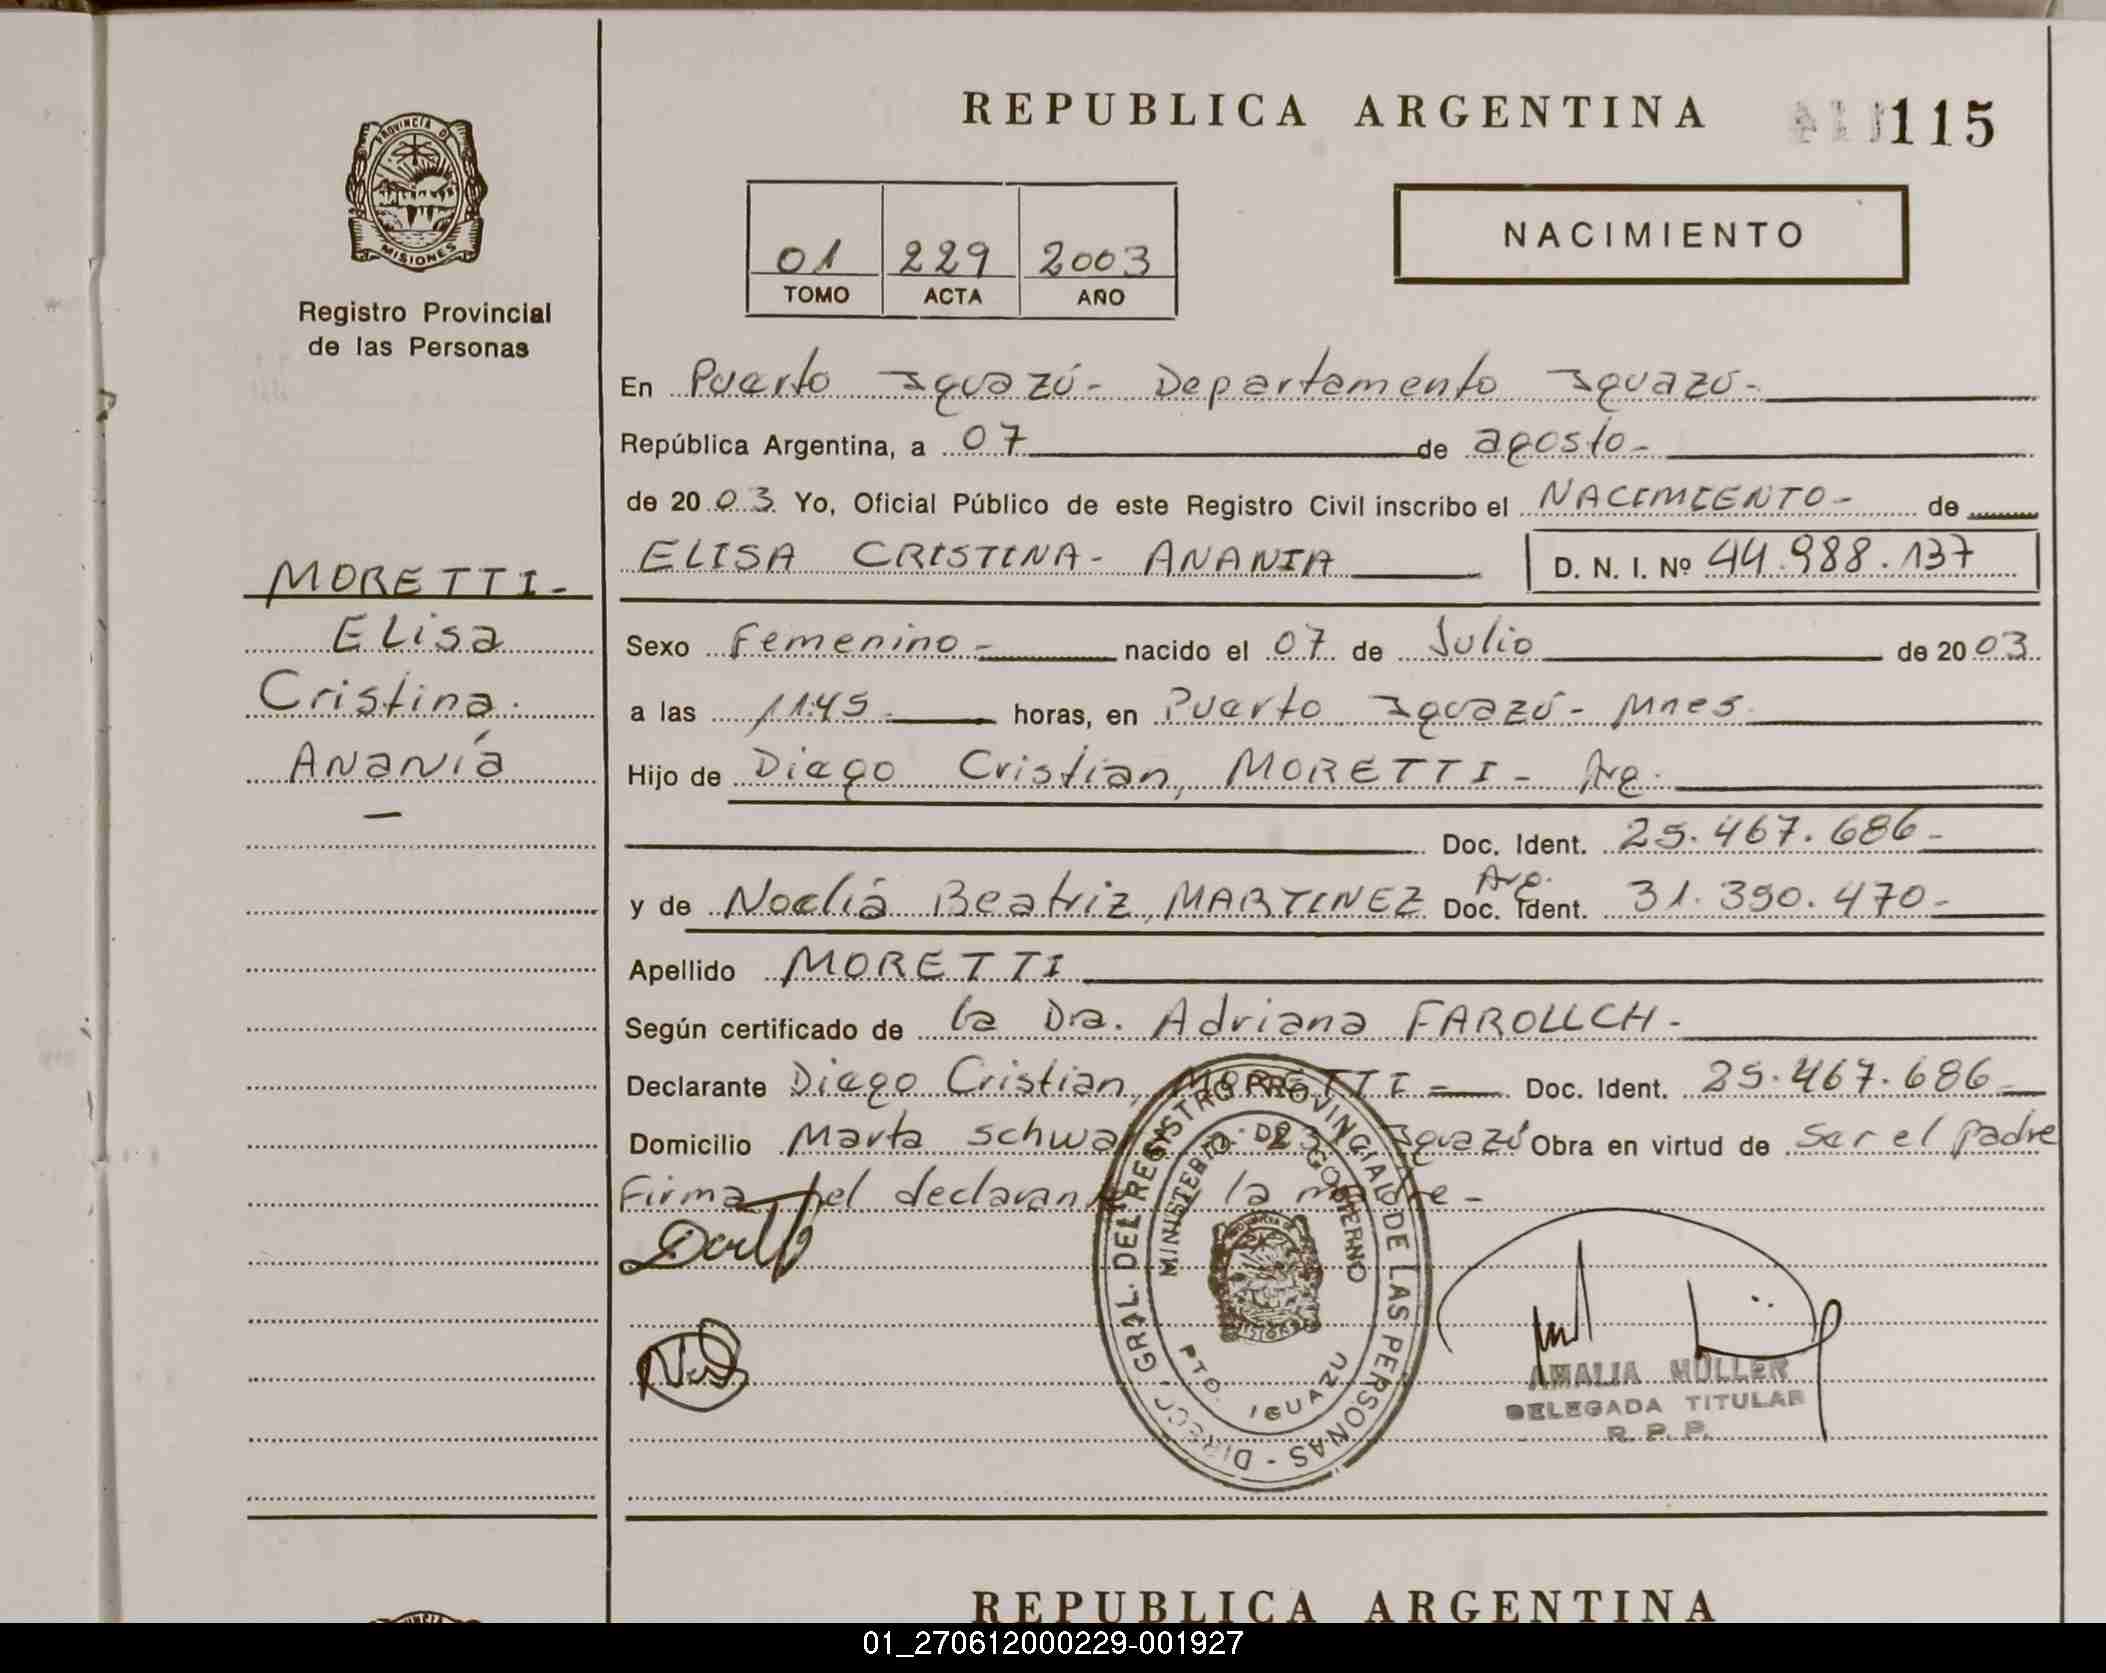 REPUBLICA ARGENTINA
115
PROVINCIA DE
MISIONES
Registro Provincial
de las Personas
01 229 2003
TOMO ACTA AÑO
NACIMIENTO
En Puerto Iguazú- Departamento Iguazú-
República Argentina, a 07 de agosto-
de 2003 Yo, Oficial Público de este Registro Civil inscribo el NACIMIENTO- de
ELISA CRISTINA- ANANIA D. N. I. Nº 44.988.137
MORETTI-
Elisa
Cristina.
Ananía
—
Sexo Femenino- nacido el 07 de Julio de 2003
a las 11:45 horas, en Puerto Iguazú- Mnes.
Hijo de Diego Cristian, MORETTI- Arg.
Doc. Ident. 25.467.686-
y de Noelia Beatriz, MARTINEZ Arg. Doc. Ident. 31.390.470-
Apellido MORETTI
Según certificado de la Dra. Adriana
Declarante Diego Cristian, MORETTI- Doc. Ident. 25.467.686
Domicilio Marta Iguazú Obra en virtud de Ser el padre
Firma del la madre-
DIRECC. GRAL. DEL REGISTRO PROVINCIAL DE LAS PERSONAS -
MINISTERIO DE GOBIERNO
PTO. IGUAZU
AMALIA MÜLLER
DELEGADA TITULAR
R. P. P.
REPUBLICA ARGENTINA
01_270612000229-001927